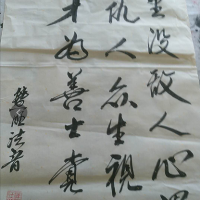 没敌人心里
仇人众生视
才为善士觉
法音